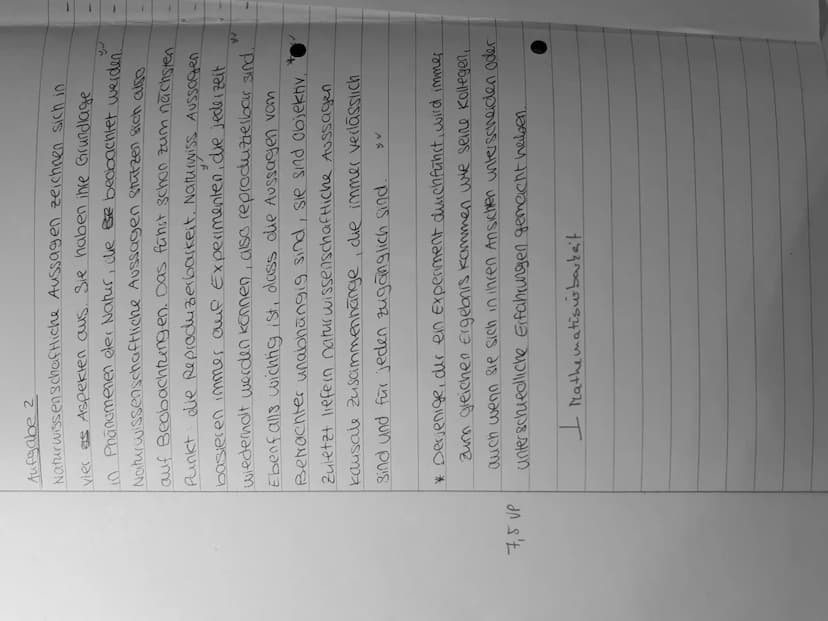 Aufgabe 2
Naturwissenschaftliche Aussagen zeichnen sich in
vier Aspekten aus. Sie haben ihre Grundlage
in Phänomenen der Natur, die beobachtet werden.
Naturwissenschaftliche Aussagen stützen sich also
auf Beobachtungen. Das führt schon zum nächsten
Punkt: die Reproduzierbarkeit. Naturwiss. Aussagen
basieren immer auf Experimenten, die jederzeit
wiederholt werden können, also reproduzierbar sind.
Ebenfalls wichtig ist, dass die Aussagen vom
Betrachter unabhängig sind, sie sind objektiv.*
Zuletzt liefern naturwissenschaftliche Aussagen
kausale Zusammenhänge, die immer verlässlich
sind und für jeden zugänglich sind.
* Derjenige, der ein Experiment durchführt, wird immer
zum gleichen Ergebnis kommen wie seine Kollegen,
auch wenn sie sich in ihren Ansichten unterscheiden oder
unterschiedliche Erfahrungen gemacht haben.
7,5 VP
⊥ Mathematisierbarkeit